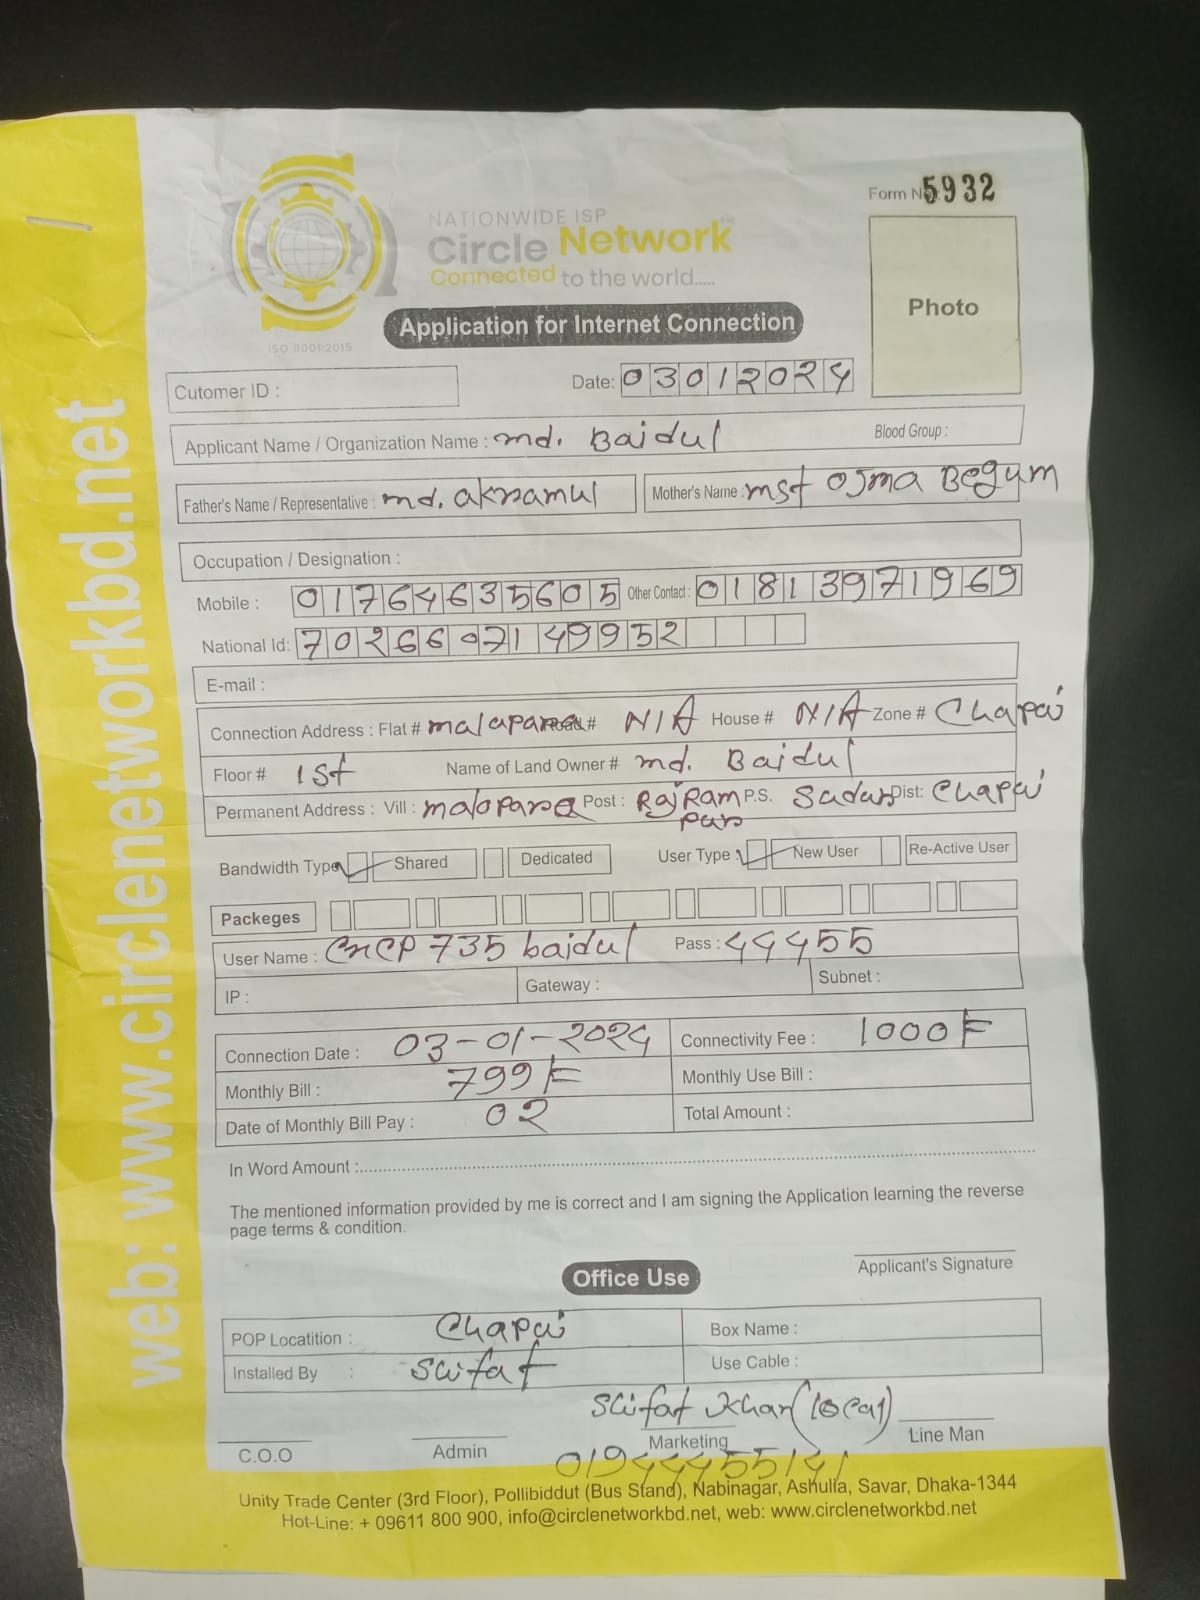 Form No. 5932
NATIONWIDE ISP
Circle Network
Connected to the world.....
ISO 9001:2015
Application for Internet Connection
Photo
Cutomer ID :
Date: 03012024
Applicant Name / Organization Name : md. Baidul Blood Group :
Father's Name / Representative : md. akramul Mother's Name : mst Ojma Begum
Occupation / Designation :
Mobile : 01764635605 Other Contact : 01813971969
National Id: 7026697149952
E-mail :
Connection Address : Flat # malapara Road # N/A House # N/A Zone # Chapai
Floor # 1st Name of Land Owner # md. Baidul
Permanent Address : Vill : malopara Post : RajRam pur P.S. Sadar Dist: Chapai
Bandwidth Type Shared Dedicated User Type : New User Re-Active User
Packeges
User Name : CNCP 735 baidul Pass : 44455
IP : Gateway : Subnet :
Connection Date : 03-01-2024 Connectivity Fee : 1000/=
Monthly Bill : 799/= Monthly Use Bill :
Date of Monthly Bill Pay : 02 Total Amount :
In Word Amount :
The mentioned information provided by me is correct and I am signing the Application learning the reverse
page terms & condition.
Applicant's Signature
Office Use
POP Locatition : Chapai Box Name :
Installed By : Sifat Use Cable :
Sifat Khan (local)
C.O.O Admin Marketing Line Man
01944455141
Unity Trade Center (3rd Floor), Pollibiddut (Bus Stand), Nabinagar, Ashulia, Savar, Dhaka-1344
Hot-Line: + 09611 800 900, info@circlenetworkbd.net, web: www.circlenetworkbd.net
web: www.circlenetworkbd.net